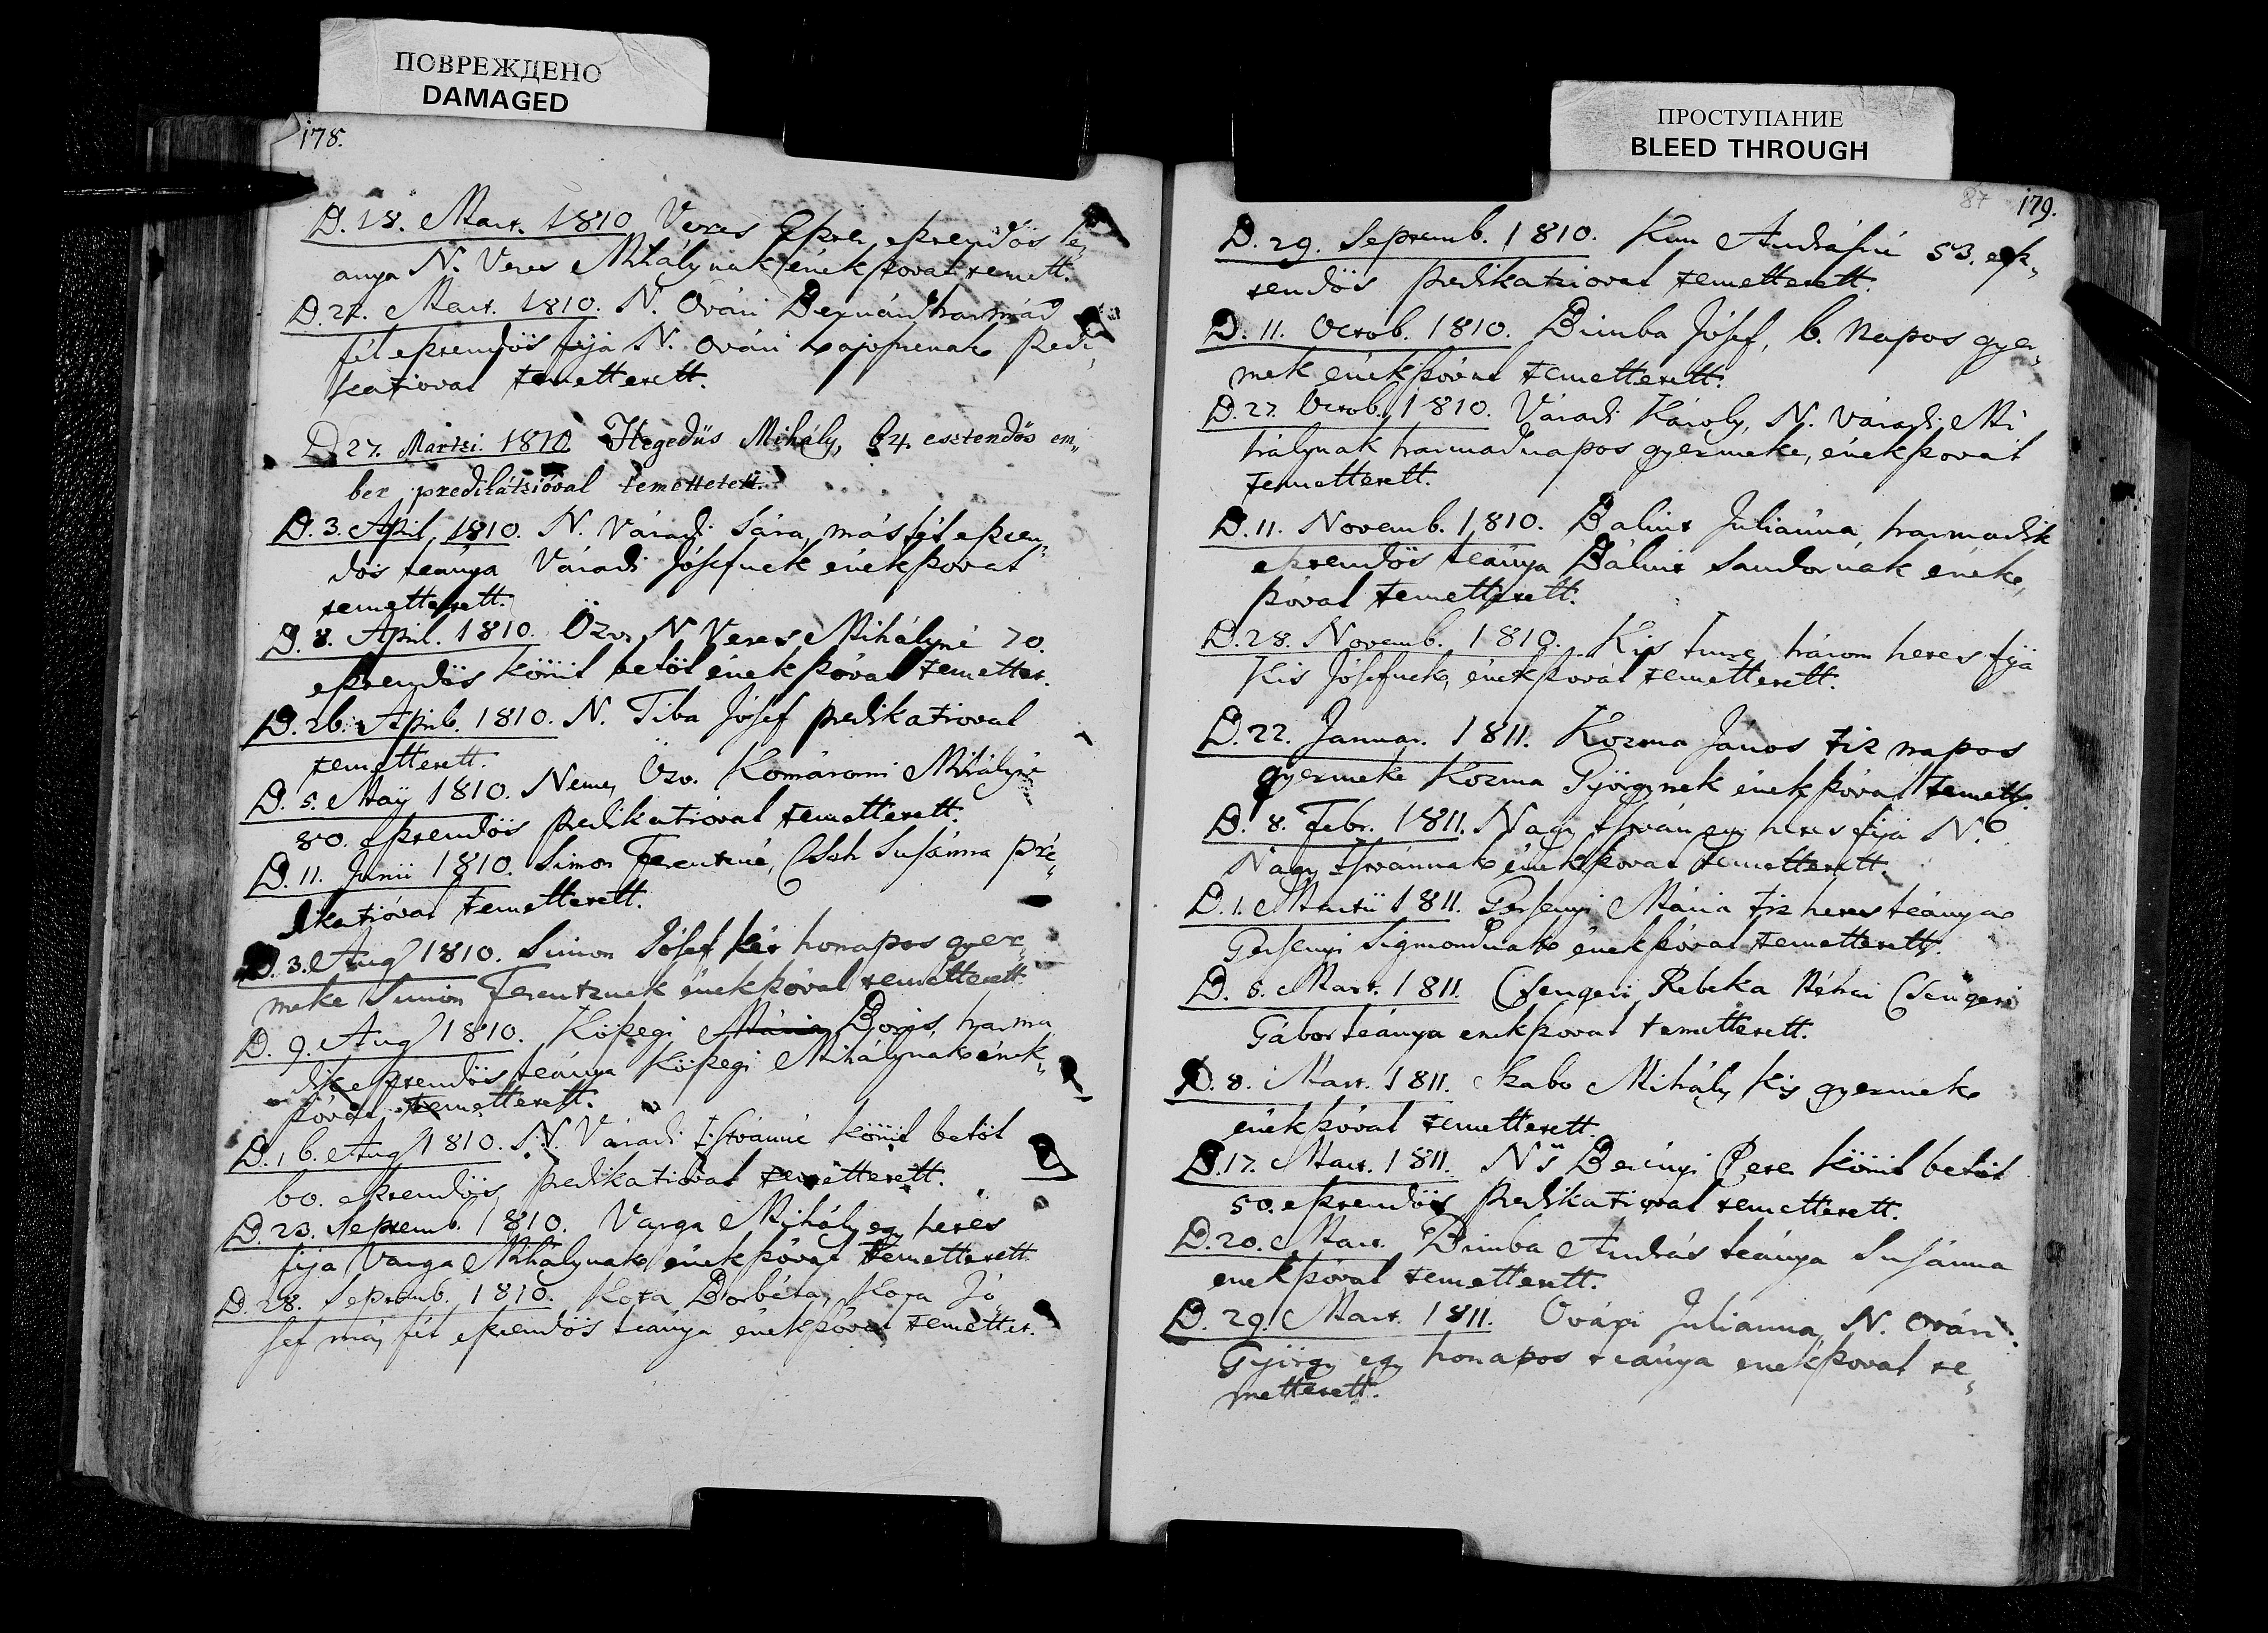 ПОВРЕЖДЕНО
DAMAGED
178.
D. 18. Mart. 1810 Veres esztendös le„
anya N. Veres Mihálynak énekszoval temett.
D. 22. Mart. 1810. N. Ovári harmad
fél esztendös fija N. Ovári Predi„
katioval temettetett.
D. 27. Martzi. 1810. Hegedüs Mihály, 64. esztendős em„
ber predikátzióval temettetett.
D. 3. April 1810. N. Váradi Sára, másfél eszten„
dös leánya Váradi Jósefnek énekszoval
temettetett.
D. 8. April. 1810. Özv. N Veres Mihályné 70.
esztendös könül belöl énekszóval temettet.
D. 26. April. 1810. N. Tiba Jósef predikatioval
temettetett.
D. 5. Maÿ 1810. Nemes Özv. Komáromi Mihályné
80. esztendös predikatioval temettetett.
D. 11. Junii 1810. Simon Ferentzné, Csch Susánna pré„
dikatióval temettetett.
D. 3. Aug 1810. Simon Jósef két honapos gyer„
meke Simon Ferentznek énekszóval temettetett
D. 9. Aug 1810. Köszegi Mária Boris, harma
dik esztendös leánya Köszegi Mihálynak ének„
szóval temettetett.
D. 16. Aug 1810. N. Váradi Istvánné könül belöl
60. esztendös, predikatioval temettetett.
D. 23. Septemb. 1810. Varga Mihály egy hetes
fija Varga Mihálynak énekszóval temettetett
D. 28. Septemb. 1810. Kota Borbára, Kota Jó„
sef más fél esztendös leánya énekszóval temettet.
ПРОСТУПАНИЕ
BLEED THROUGH
87 179.
D. 29. Septemb. 1810. Kun Andrásné 53. esz„
tendös predikatzioval temettetett.
D. 11. Octob. 1810. Bimba Jósef, 6. napos gyer„
mek énekszóval temettetett.
D. 27. Octob. 1810. Váradi Károly, N. Váradi Mi
hálynak harmadnapos gyermeke, énekszoval
temettetett.
D. 11. Novemb. 1810. Balint Juliánna, harmadik
esztendös leánya Bálint Sandornak ének„
szóval temettetett.
D. 28. Novemb. 1810. Kis Imre három hetes fija
Kis Jósefnek, énekszovál temettetett.
D. 22. Januar. 1811. Kozma János tiz napos
gyermeke Kozma Györgynek énekszóval temett.
D. 8. Febr. 1811. Nagy István egy hetes fija N.
Nagy Istvánnak énekszoval temettetett.
D. 1. Martii 1811. Gersenyi Mária tiz hetes leánya
Gersenyi Sigmondnak énekszóval temettetett.
D. 5. Mart. 1811. Csengeri Rebeka Néhai Csengeri
Gábor leánya enekszóval temettetett.
D. 8. Mart. 1811. Szabo Mihály Kis gyermek
énekszóval temettetett.
D. 17. Mart. 1811. Berényi Peter könül belöl
50. esztendös Predikatioval temettetett.
D. 20. Mart. Bimba András leánya Susánna
enekszóval temettetett.
D. 29. Mart. 1811. Ovári Julianna, N. Ovári
György egy honapos leánya enekszoval te„
mettetett.